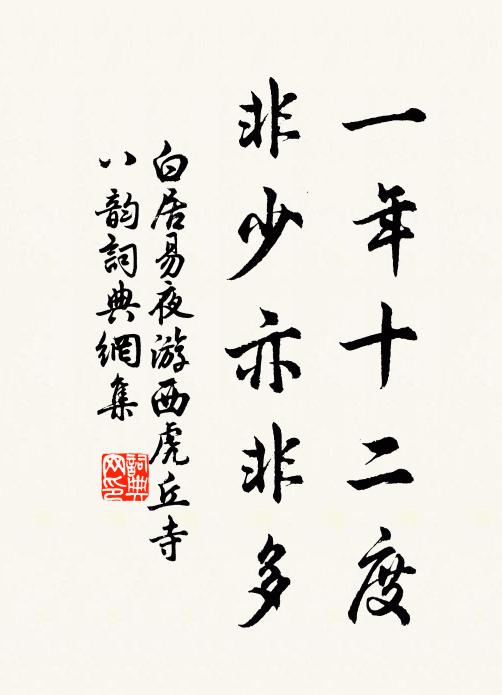 一年十二度
非少亦非多
白居易夜游西虎丘寺
八韵詞典網集
詞典
网印